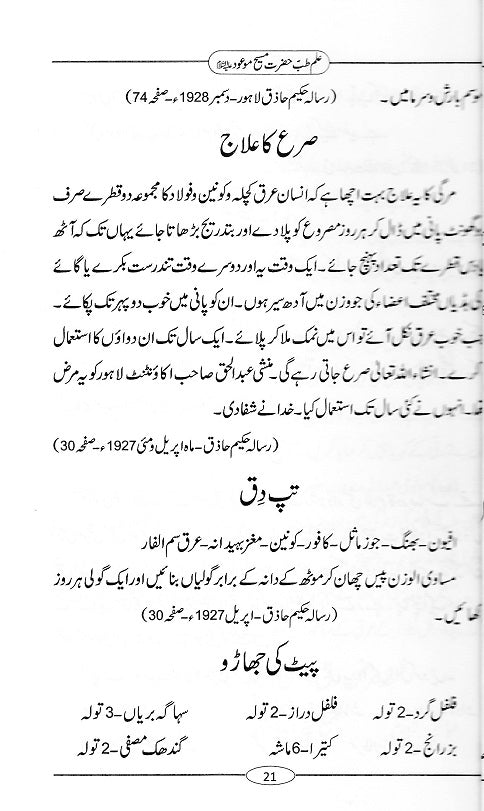 علم طب حضرت مسیح موعودؑ
موسم بارش و سرما میں۔ (رسالہ حکیم حاذق لاہور-دسمبر 1928ء-صفحہ 74)
صرع کا علاج
مرگی کا یہ علاج بہت اچھا ہے کہ انسان عرق کچلہ و کونین و فولاد کا مجموعہ دو قطرے صرف
دو گھونٹ پانی میں ڈال کر ہر روز مصروع کو پلا دے اور بتدریج بڑھاتا جائے یہاں تک کہ آٹھ
یا دس قطرے تک تعداد پہنچ جائے۔ ایک وقت یہ اور دوسرے وقت تندرست بکرے یا گائے
کی ہڈیاں مختلف اعضاء کی جو وزن میں آدھ سیر ہوں۔ ان کو پانی میں خوب دوپہر تک پکائے۔
جب خوب عرق نکل آئے تو اس میں نمک ملا کر پلائے۔ ایک سال تک ان دواؤں کا استعمال
کرے۔ انشاء اللہ تعالیٰ صرع جاتی رہے گی۔ منشی عبدالحق صاحب اکاؤنٹنٹ لاہور کو یہ مرض
تھا۔ انہوں نے کئی سال تک استعمال کیا۔ خدا نے شفا دی۔
(رسالہ حکیم حاذق-ماہ اپریل و مئی 1927ء-صفحہ 30)
تپ دِق
افیون-بھنگ-جوز ماثل-کافور-کونین-مغز بہیدانہ-عرق سم الفار
مساوی الوزن پیس چھان کر موٹھ کے دانہ کے برابر گولیاں بنائیں اور ایک گولی ہر روز
کھائیں۔ (رسالہ حکیم حاذق-اپریل 1927ء-صفحہ 30)
پیٹ کی جھاڑو
فلفل گرد-2 تولہ فلفل دراز-2 تولہ سہاگہ بریاں-3 تولہ
بزرالنج-2 تولہ کتیرا-6 ماشہ گندھک مصفی-2 تولہ
21